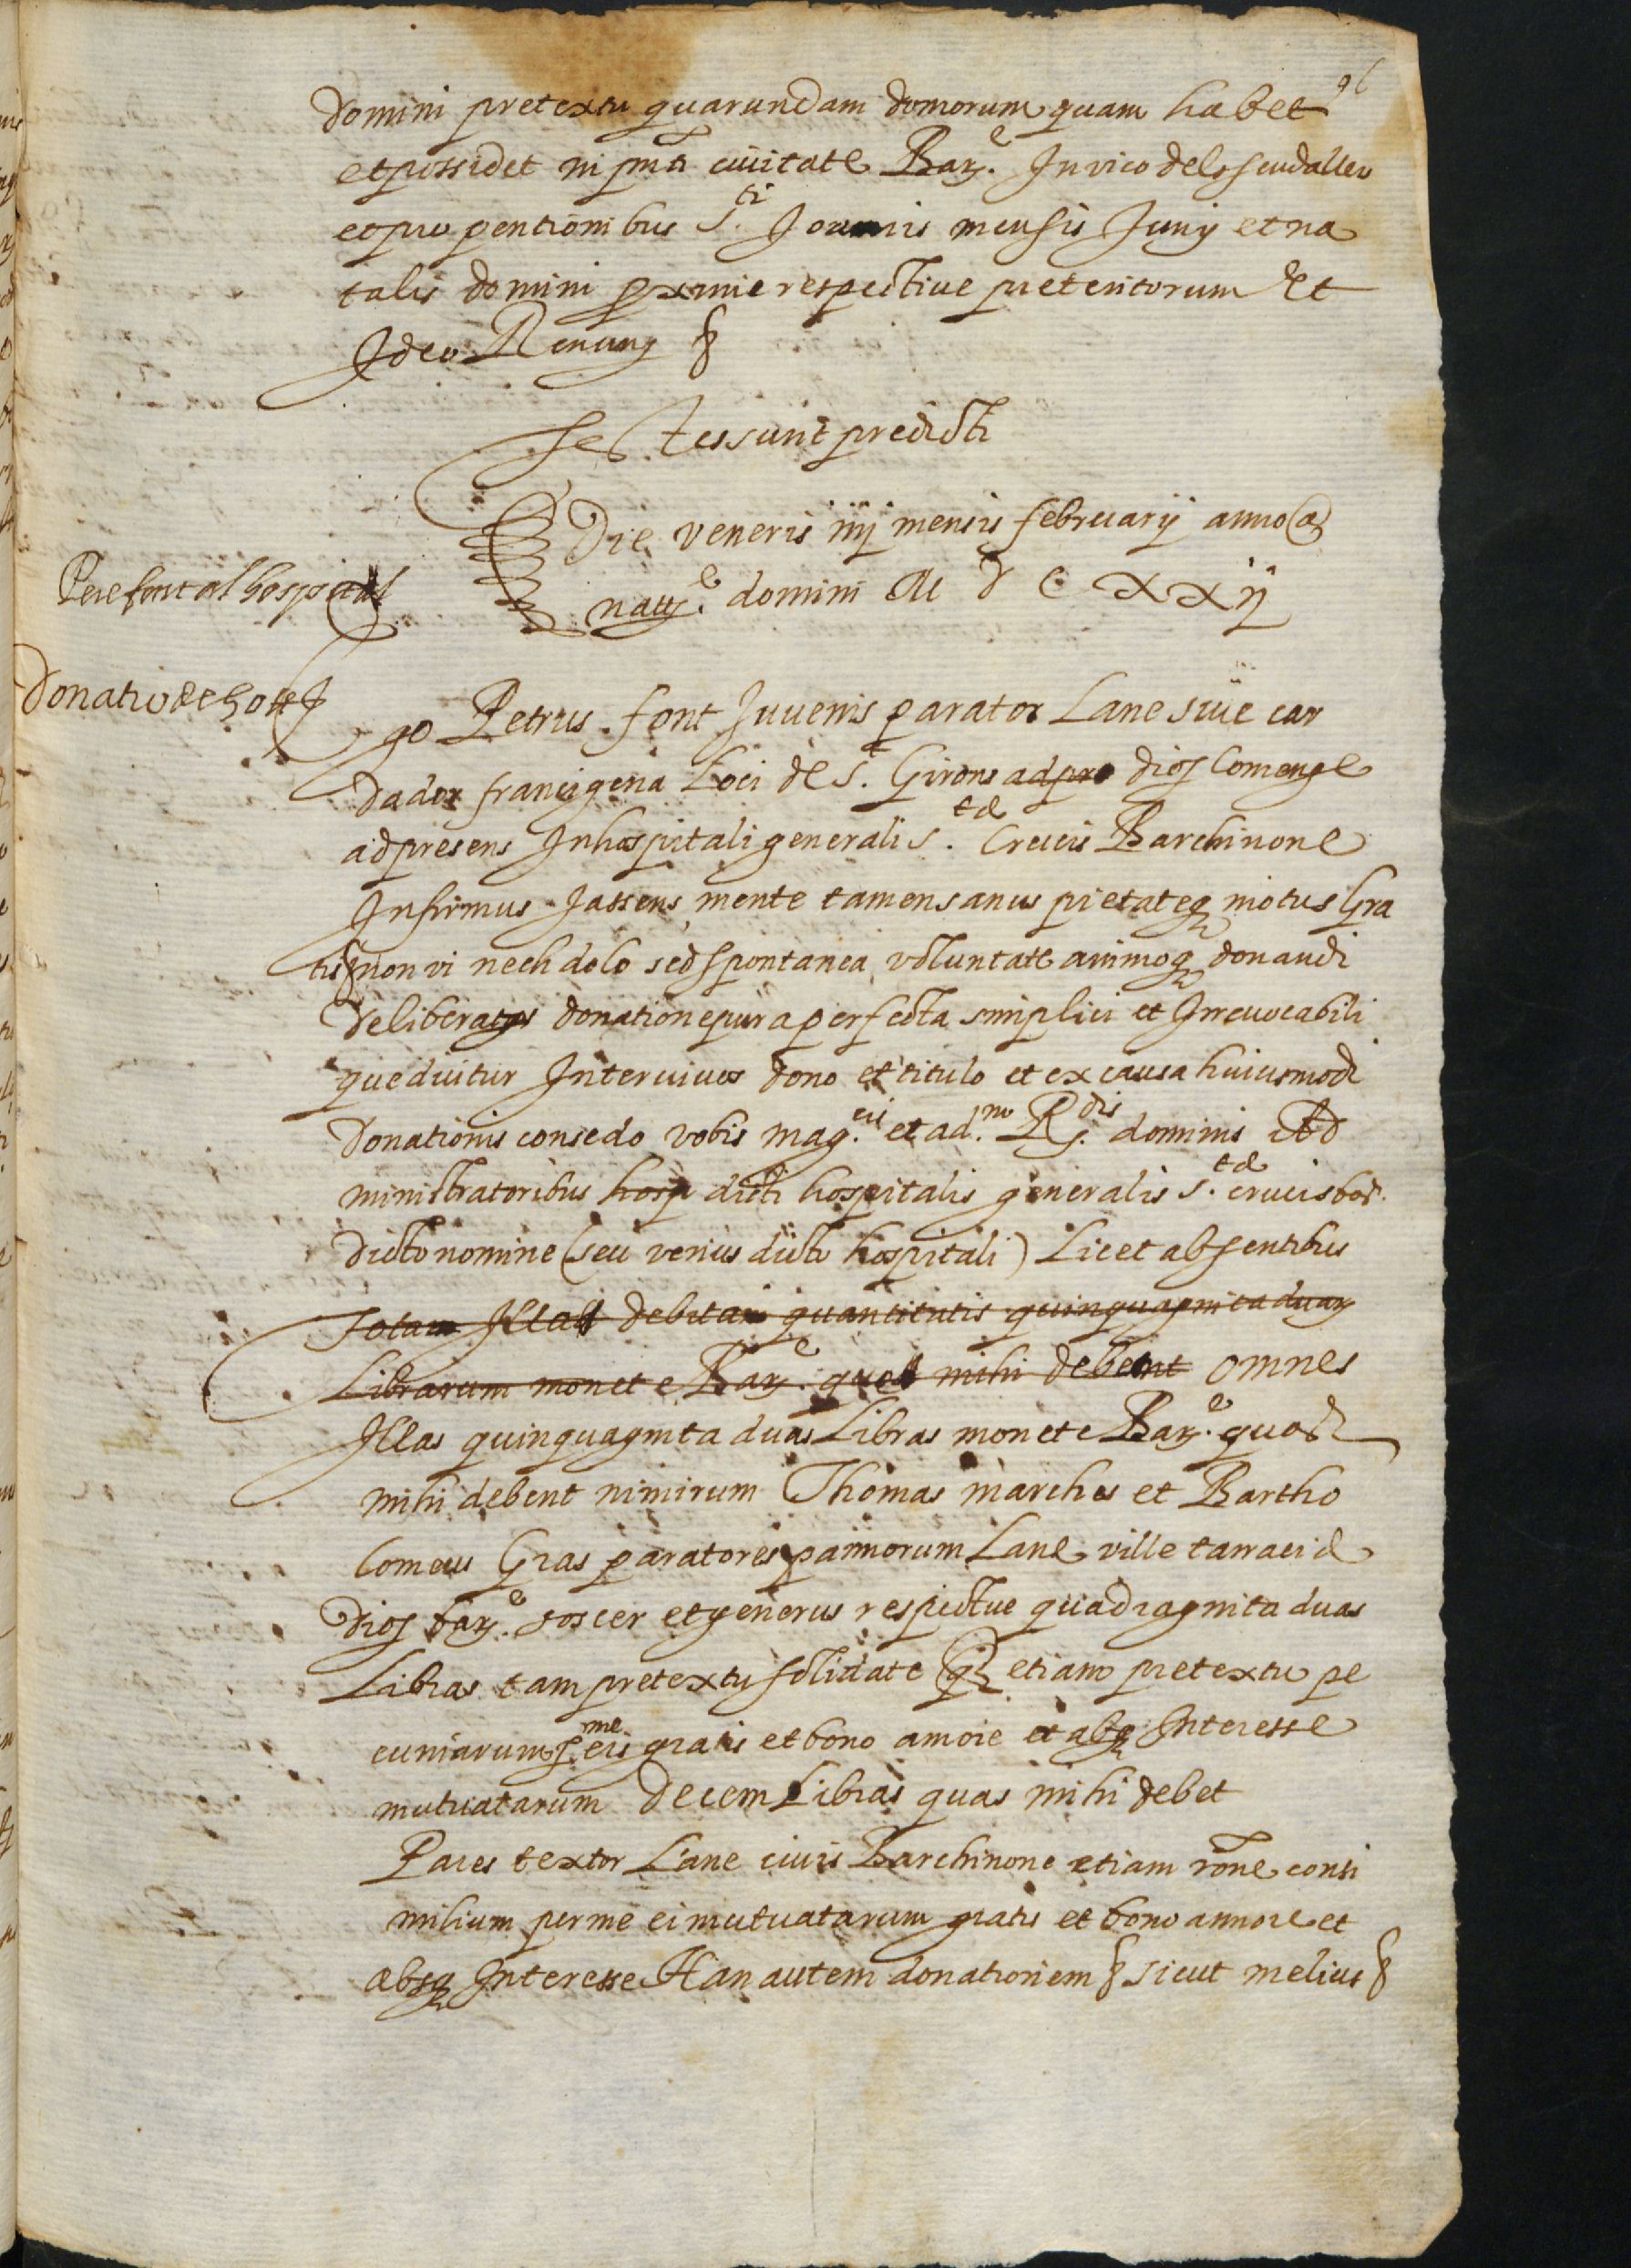 96
domini pretextu quarundam domorum quam habet
et possidet in pnti ciuitate Barne. In vico dels scudallers
et pro pentionibus Sti. Joannis mensis Junij et na
talis domini proxime respectiue preteritorum Et
Ideo Renung &
Testes sunt predicti
Die veneris iiij mensis februarij anno a
natte. domini M D C XX ij
Pere font al hospital
Donatio de hom
Ego Petrus font Juvenis parator Lane siue car
dador francigena Loci de St. Girons ad pre dios Comenge
ad presens In hospitali generali S.te Crucis Barchinone
Infirmus Jassens mente tamen sanus pietateq motus Gra
tis & non vi nech dolo sed spontanea voluntate animoq donandi
deliberatus donatione pura perfecta simplici et Irreuocabili
que dicitur Inter viuos dono et titulo et ex causa huiusmodi
Donationis consedo vobis mag.cis et ad.m R.dis dominis Ad
ministratoribus hosp dicti hospitalis generalis S.te crucis bar.
dicto nomine (seu verius dicto hospitali) Licet absentibus
Totam Illam debitam quantitatis quinquaginta duar
Librarum monete Barne. quas mihi debent omnes
Illas quinquaginta duas Libras monete Barne. quas
mihi debent nimirum Thomas marches et Bartho
lomeus Gras paratores pannorum Lane ville tarracie
dios barne. soscer et generus respectiue quadraginta duas
Libras tam pretextu solidate qz etiam pretextu pe
cuniarum per me eis gratis et bono amore et absq Interesse
mutuatarum Decem Libras quas mihi debet
Pares textor Lane ciuis Barchinone etiam rone consi
milium per me ei mutuatarum gratis et bono amore et
absq Interesse Han autem donationem & sicut melius &